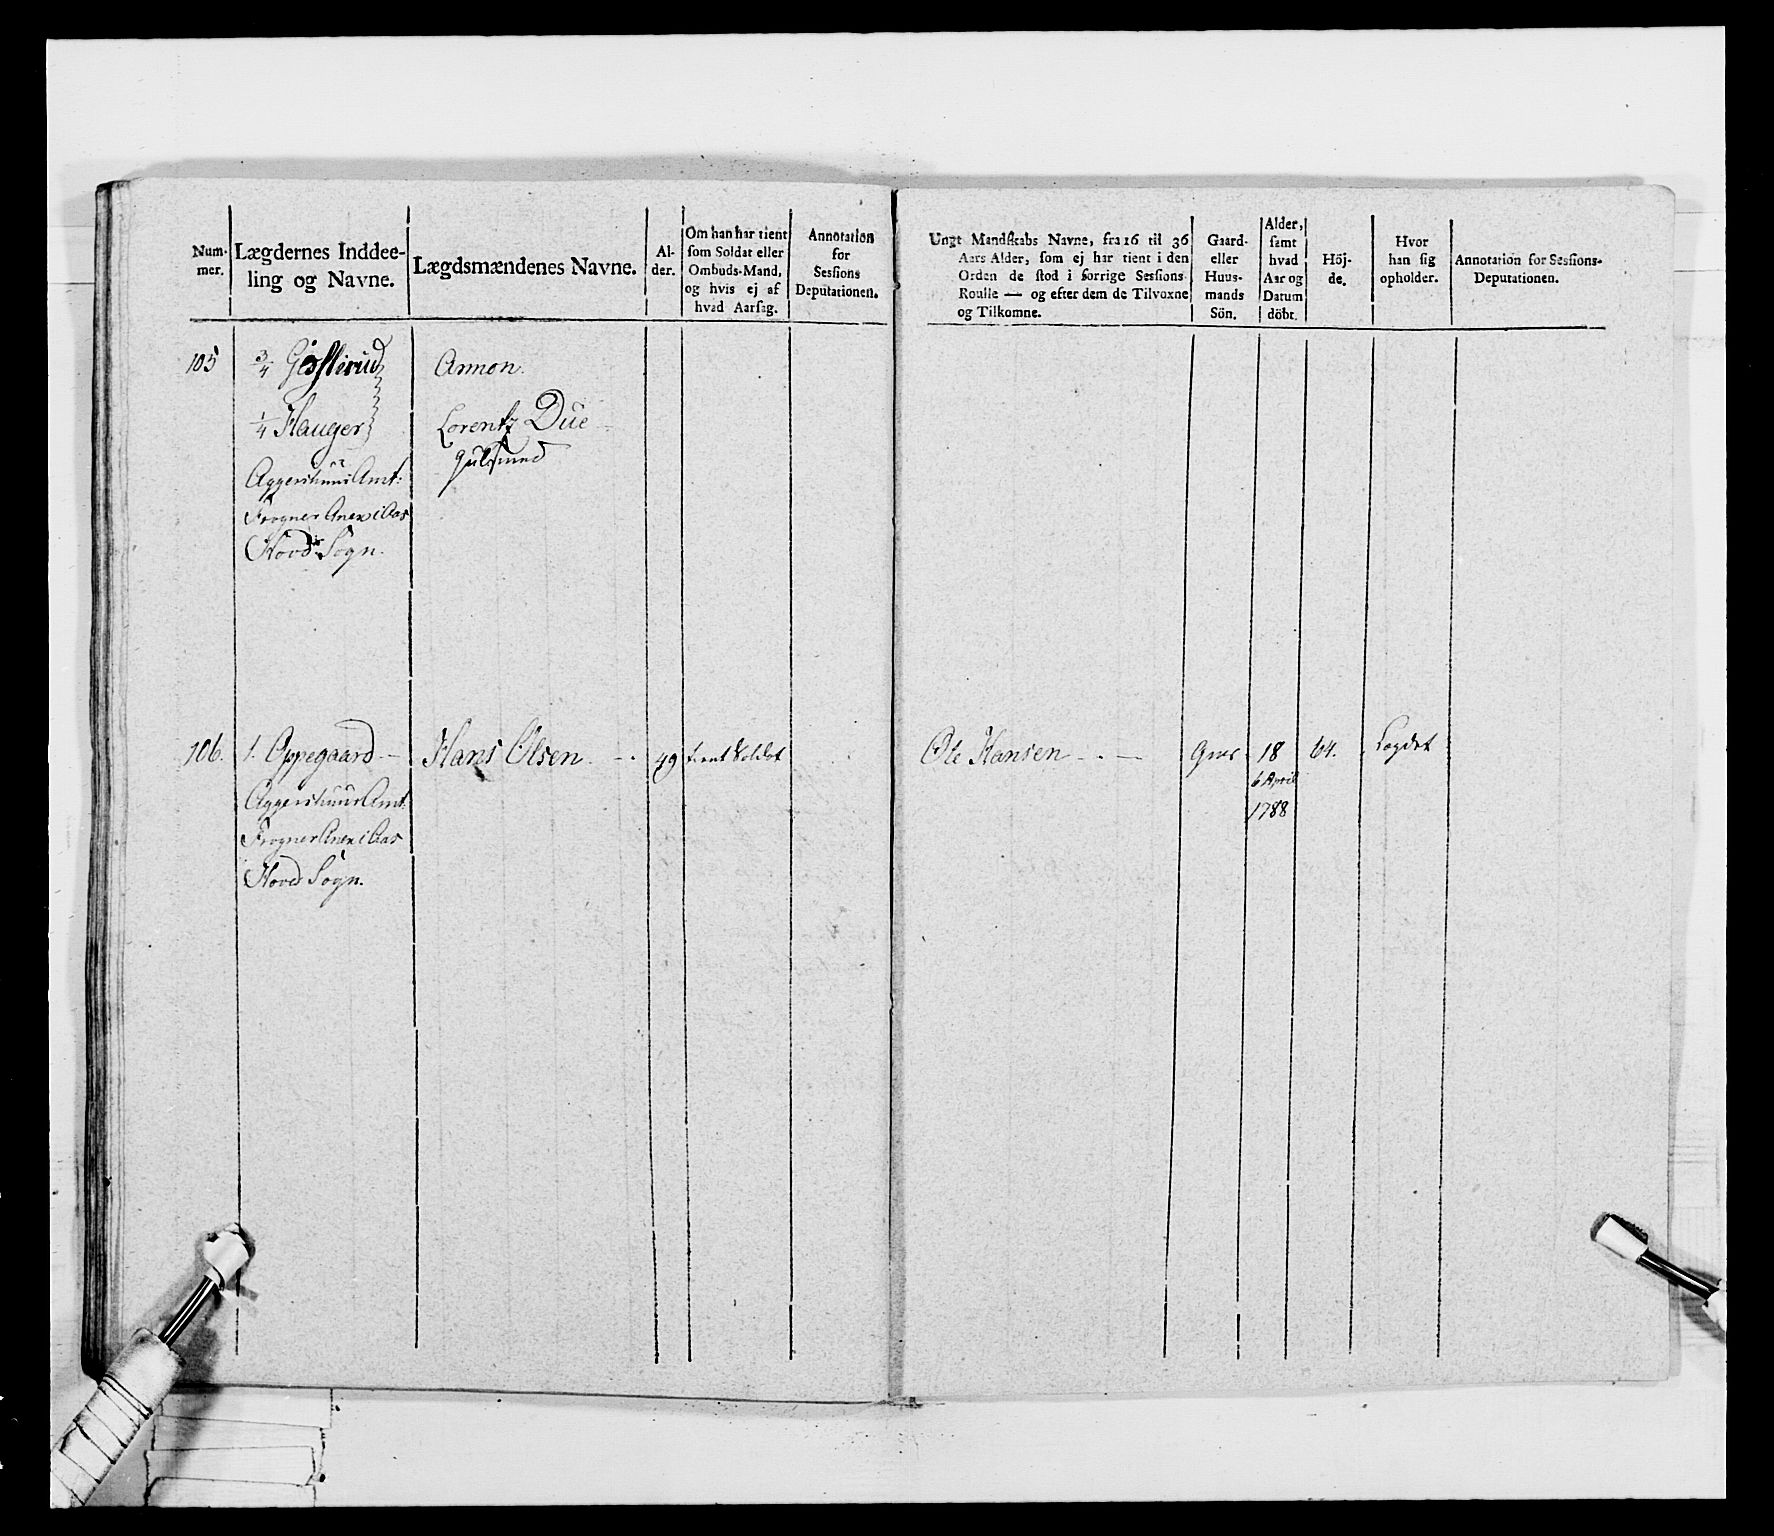 Num-
mer.
Lægdernes Inddee-
ling og Navne.
Lægdsmændenes Navne.
Al-
der.
Om han har tient
som Soldat eller
Ombuds-Mand,
og hvis ej af
hvad Aarsag.
Annotation
for
Sessions
Deputationen.
Ungt Mandskabs Navne, fra 16 til 36
Aars Alder, som ej har tient i den
Orden de stod i forrige Sessions-
Roulle — og efter dem de Tilvoxne
og Tilkomne.
Gaard-
eller
Huus-
mands
Sön.
Alder,
samt
hvad
Aar og
Datum
döbt.
Höj-
de.
Hvor
han sig
opholder.
Annotation for Sessions-
Deputationen.
105 3/4 Annon.
1/4 Hauger Lorentz Due
Aggershuus Amt:
Frogner Anex i Aas
Hovd Sogn.
106. 1. Oppegaard — Hans Olsen. 49 tient Soldat Ole Hansen — Gms 18 64. Lægdet
Aggershuus Amt. 6 April
Frogner Anex i Aas 1788
Hoved Sogn.